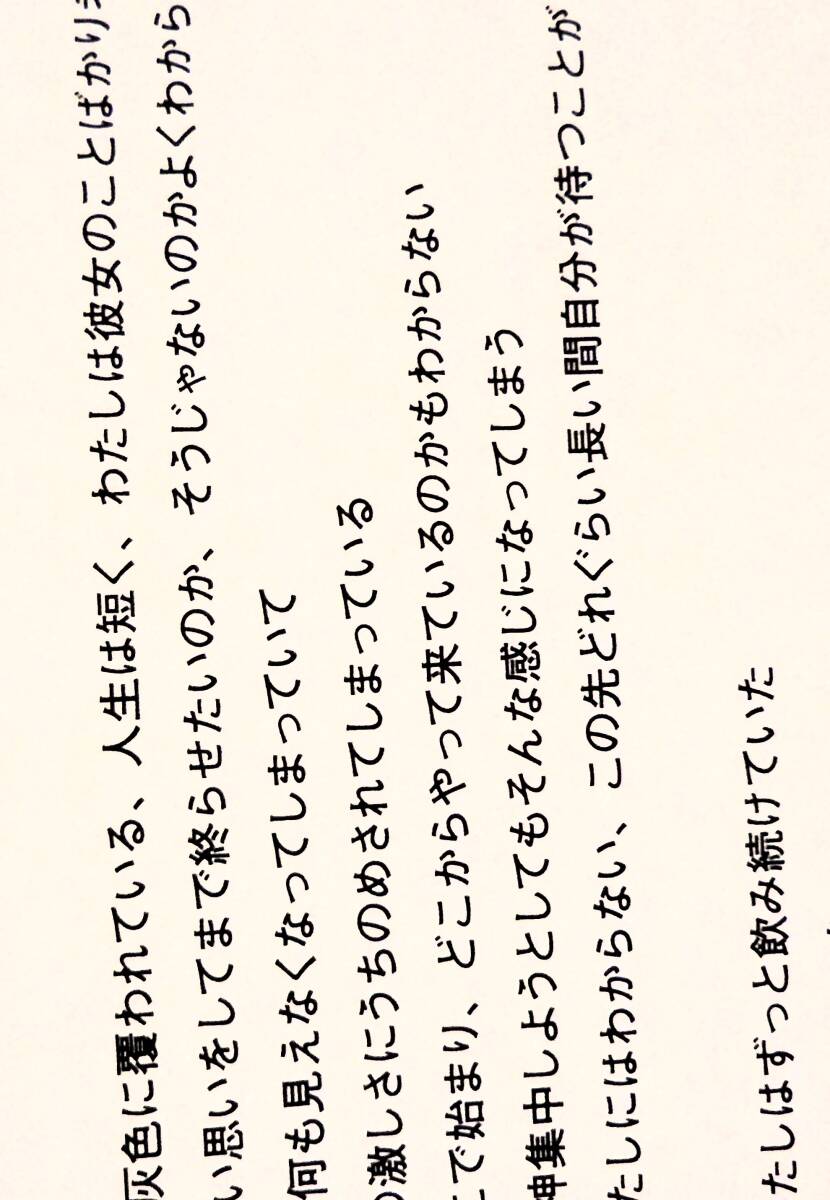 灰色に覆われている、人生は短く、わたしは彼女のことばかり
い思いをしてまで終らせたいのか、そうじゃないのかよくわから
何も見えなくなってしまっていて
の激しさにうちのめされてしまっている
こで始まり、どこからやって来ているのかもわからない
神集中しようとしてもそんな感じになってしまう
たしにはわからない、この先どれぐらい長い間自分が待つことが
たしはずっと飲み続けていた